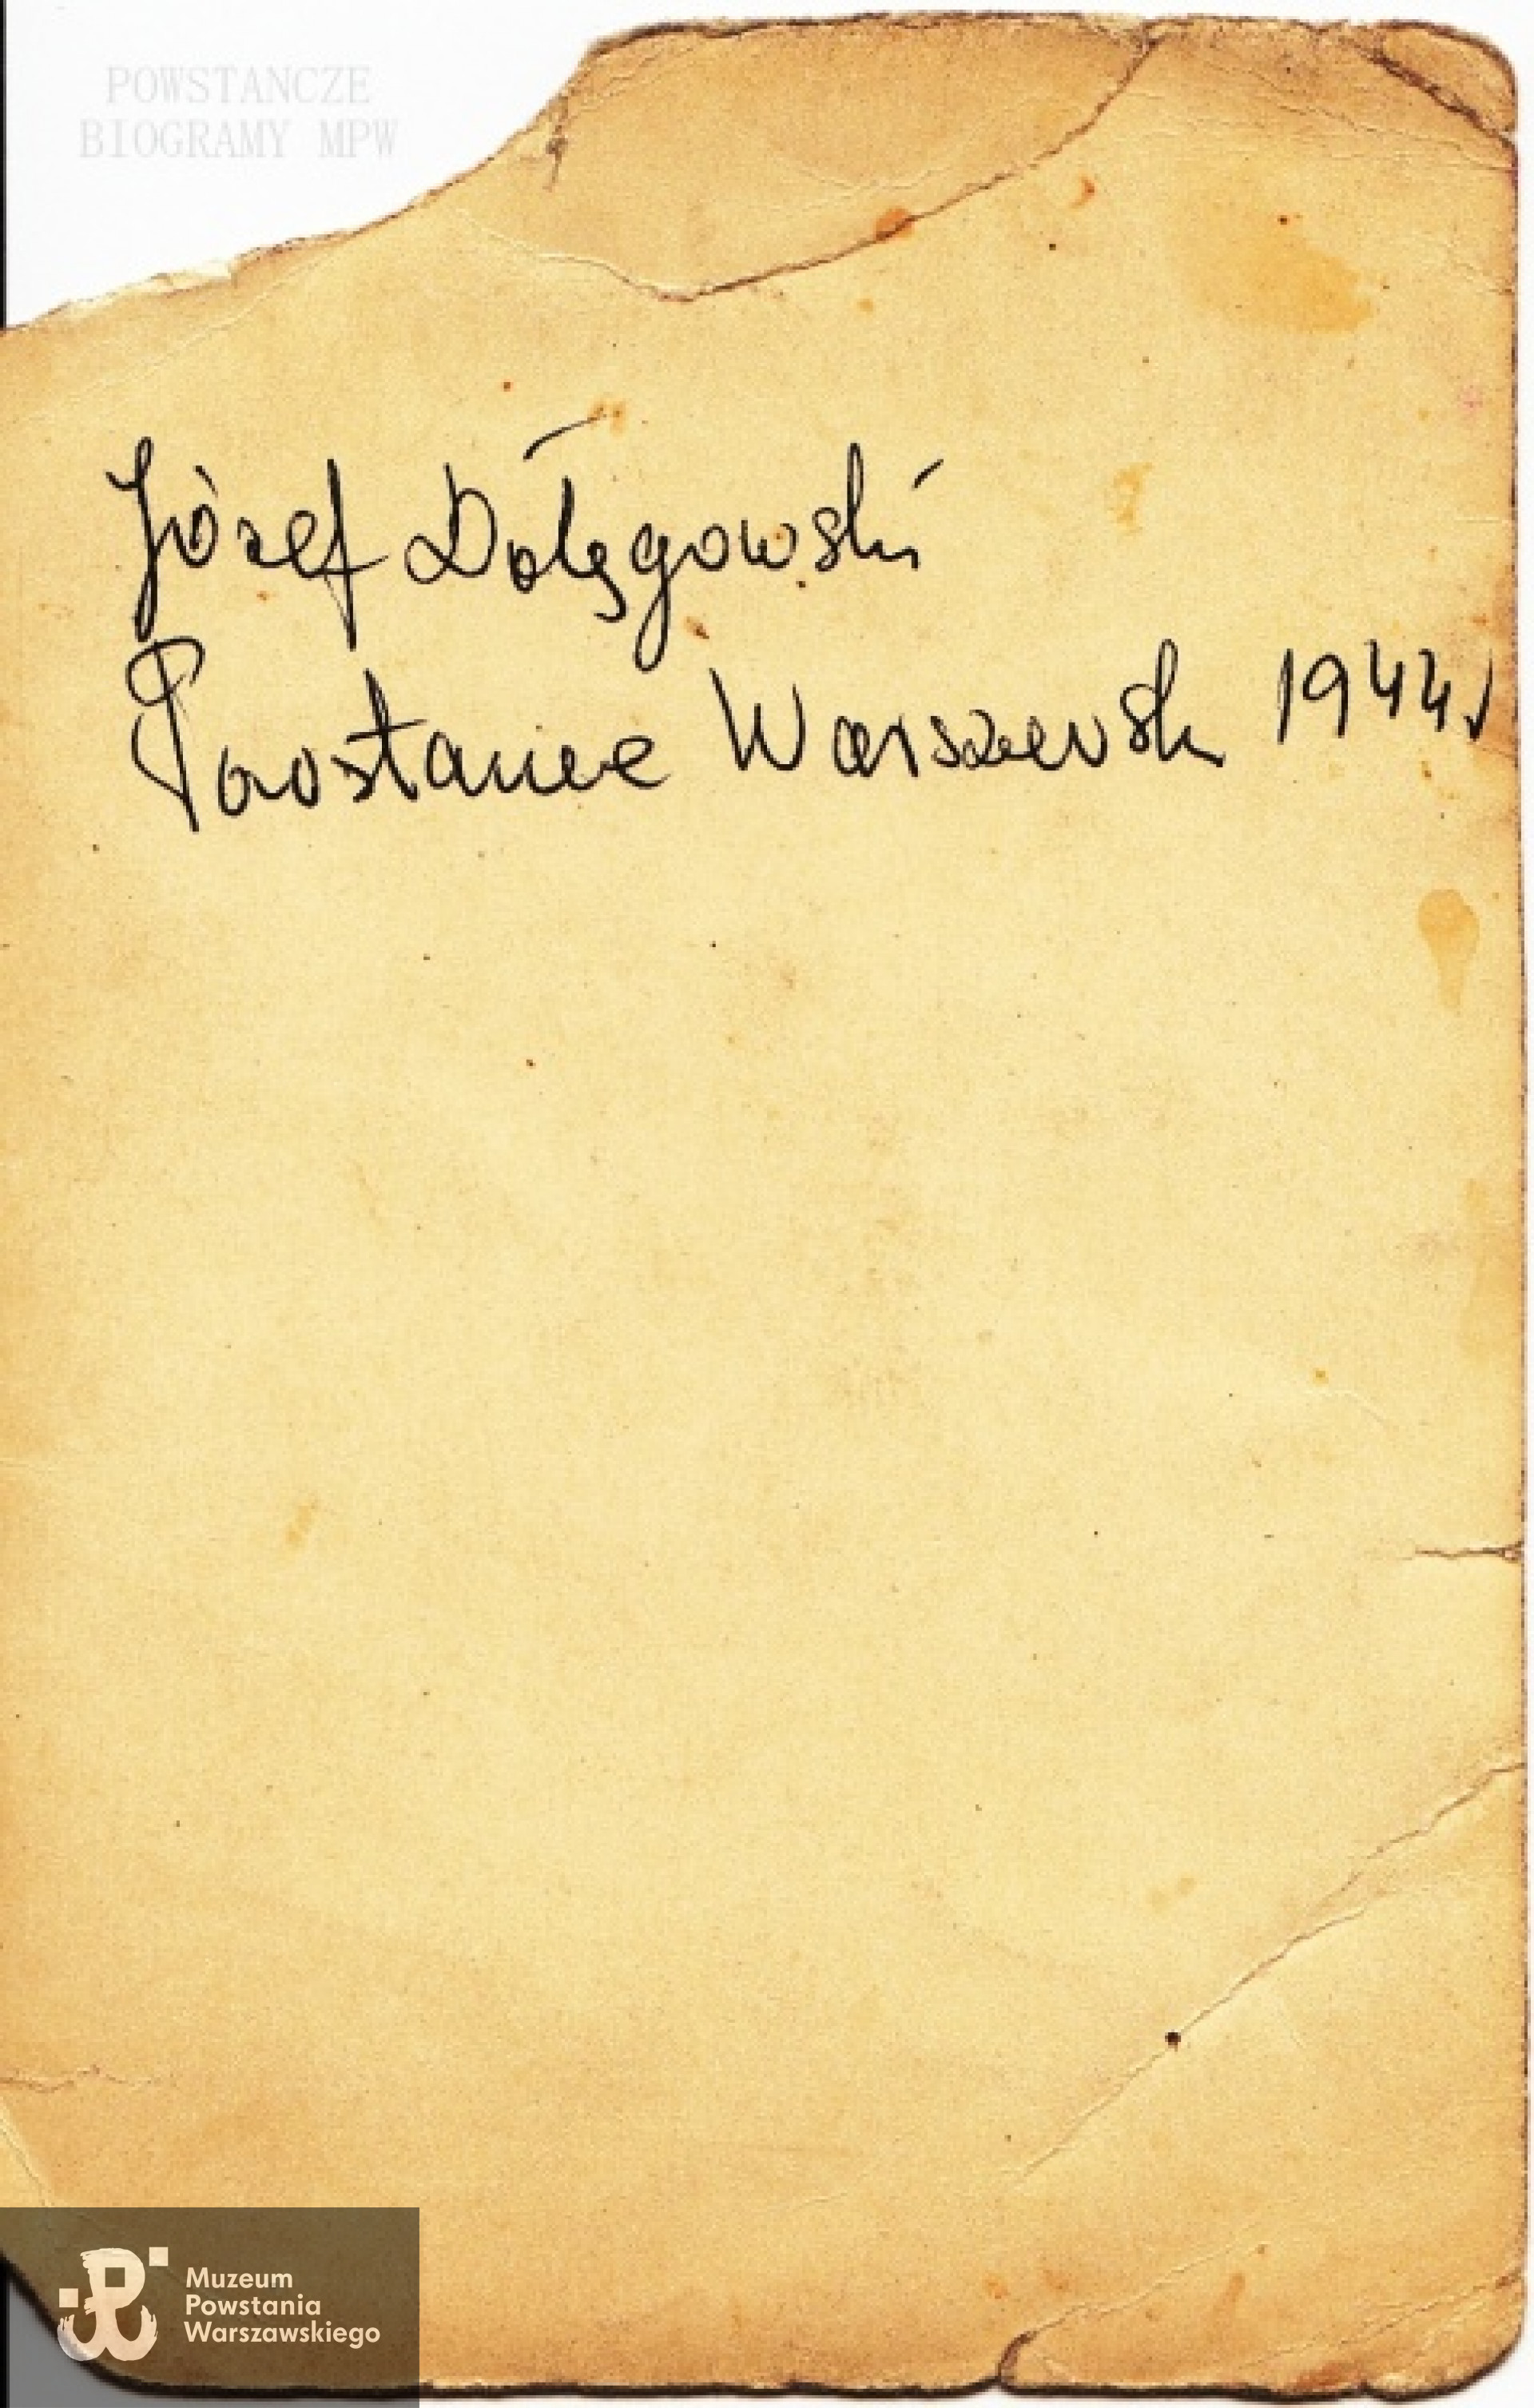 POWSTAŃCZE
BIOGRAMY MPW
Józef Dołęgowski
Powstaniec Warszawski 1944r
Muzeum
Powstania
Warszawskiego